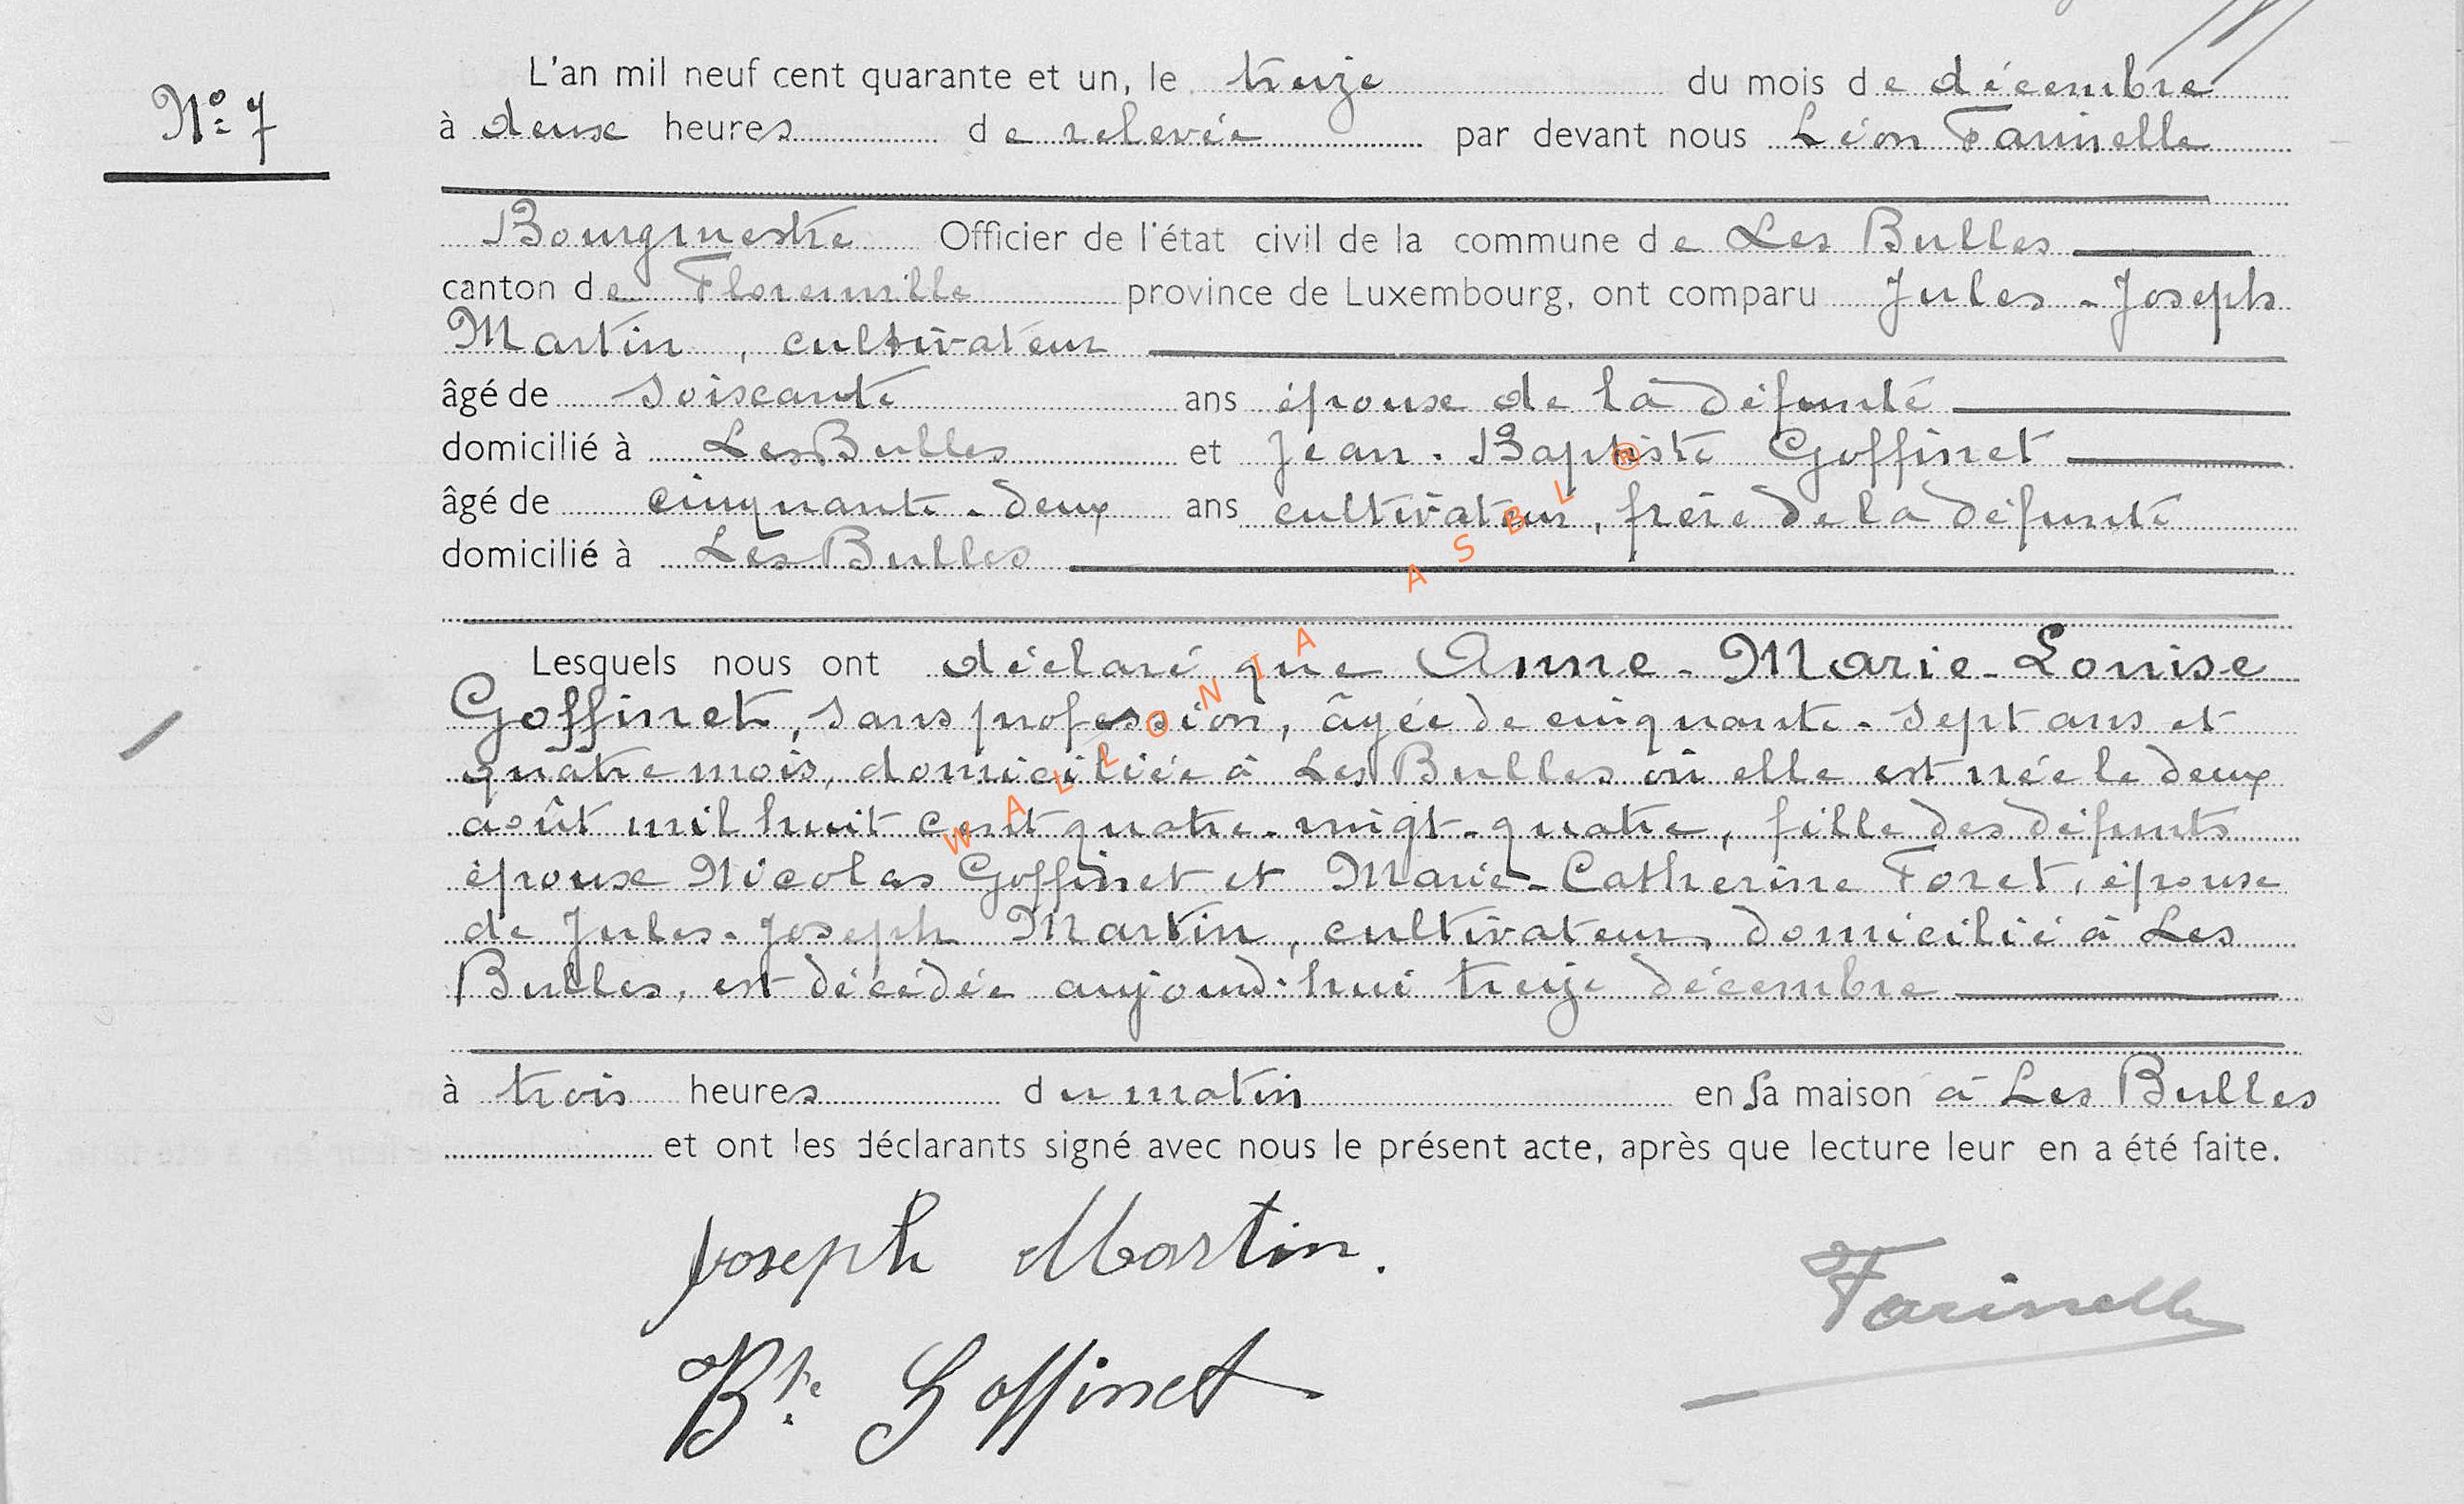 N° 7
L'an mil neuf cent quarante et un, le treize du mois de décembre
à deux heures de relevée par devant nous Léon Farinelle
Bourgmestre Officier de l'état civil de la commune de Les Bulles
canton de Florenville province de Luxembourg, ont comparu Jules-Joseph
Martin, cultivateur
âgé de soixante ans époux de la défunte
domicilié à Les Bulles et Jean-Baptiste Goffinet
âgé de cinquante-deux ans cultivateur, frère de la défunte
domicilié à Les Bulles
Lesquels nous ont déclaré que Anne-Marie-Louise
Goffinet, sans profession, âgée de cinquante-sept ans et
quatre mois, domiciliée à Les Bulles où elle est née le deux
août mil huit cent quatre-vingt-quatre, fille des défunts
époux Nicolas Goffinet et Marie-Catherine Foret, épouse
de Jules-Joseph Martin, cultivateur, domicilié à Les
Bulles, est décédée aujourd'hui treize décembre
à trois heures du matin en sa maison à Les Bulles
et ont les déclarants signé avec nous le présent acte, après que lecture leur en a été faite.
Joseph Martin.
Farinelle
Bte Goffinet
WALLONIA ASBL ®